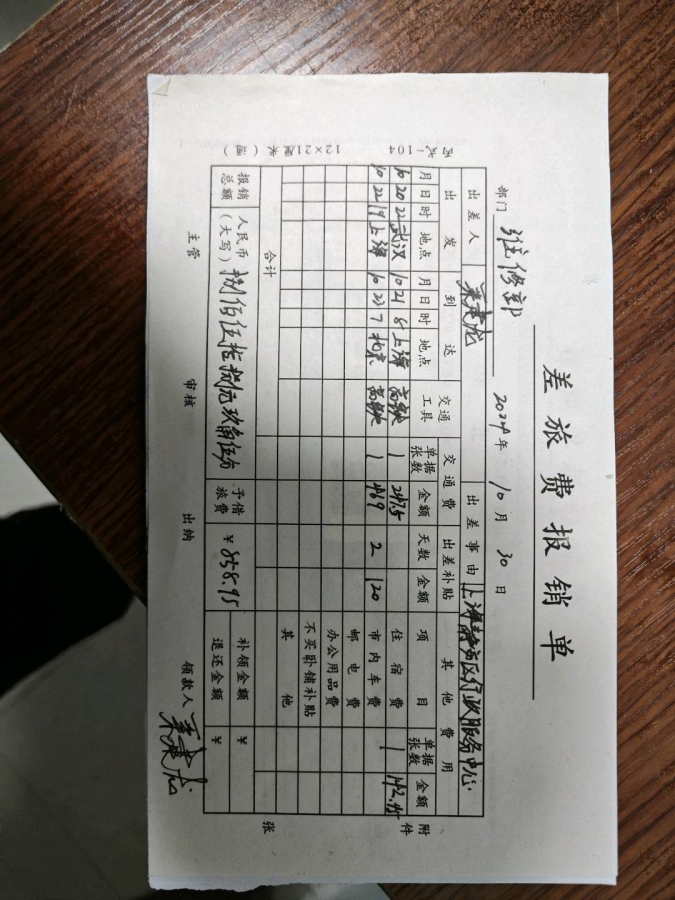 差旅费报销单
部门 维修部 2024年 10月 30日
出差人 出差事由 上海 区行政服务中心
出发 到达 交通工具 交通费 出差补贴 其他费用
月 日 时 地点 月 日 时 地点 单据张数 金额 天数 金额 项目 单据张数 金额
10 20 22 武汉 10 21 8 上海 高铁 1 247.5 住宿费 1 142.45
10 22 19 上海 10 23 7 高铁 1 469 2 120 市内车费
邮电费
办公用品费
不买卧铺补贴
其他
合计
报销总额 人民币(大写) 捌佰伍拾捌元玖角伍分 予借旅费 ¥858.95 补领金额 ¥
退还金额 ¥
主管 审核 出纳 领款人
附件 张
丙式-104 12×21厘米